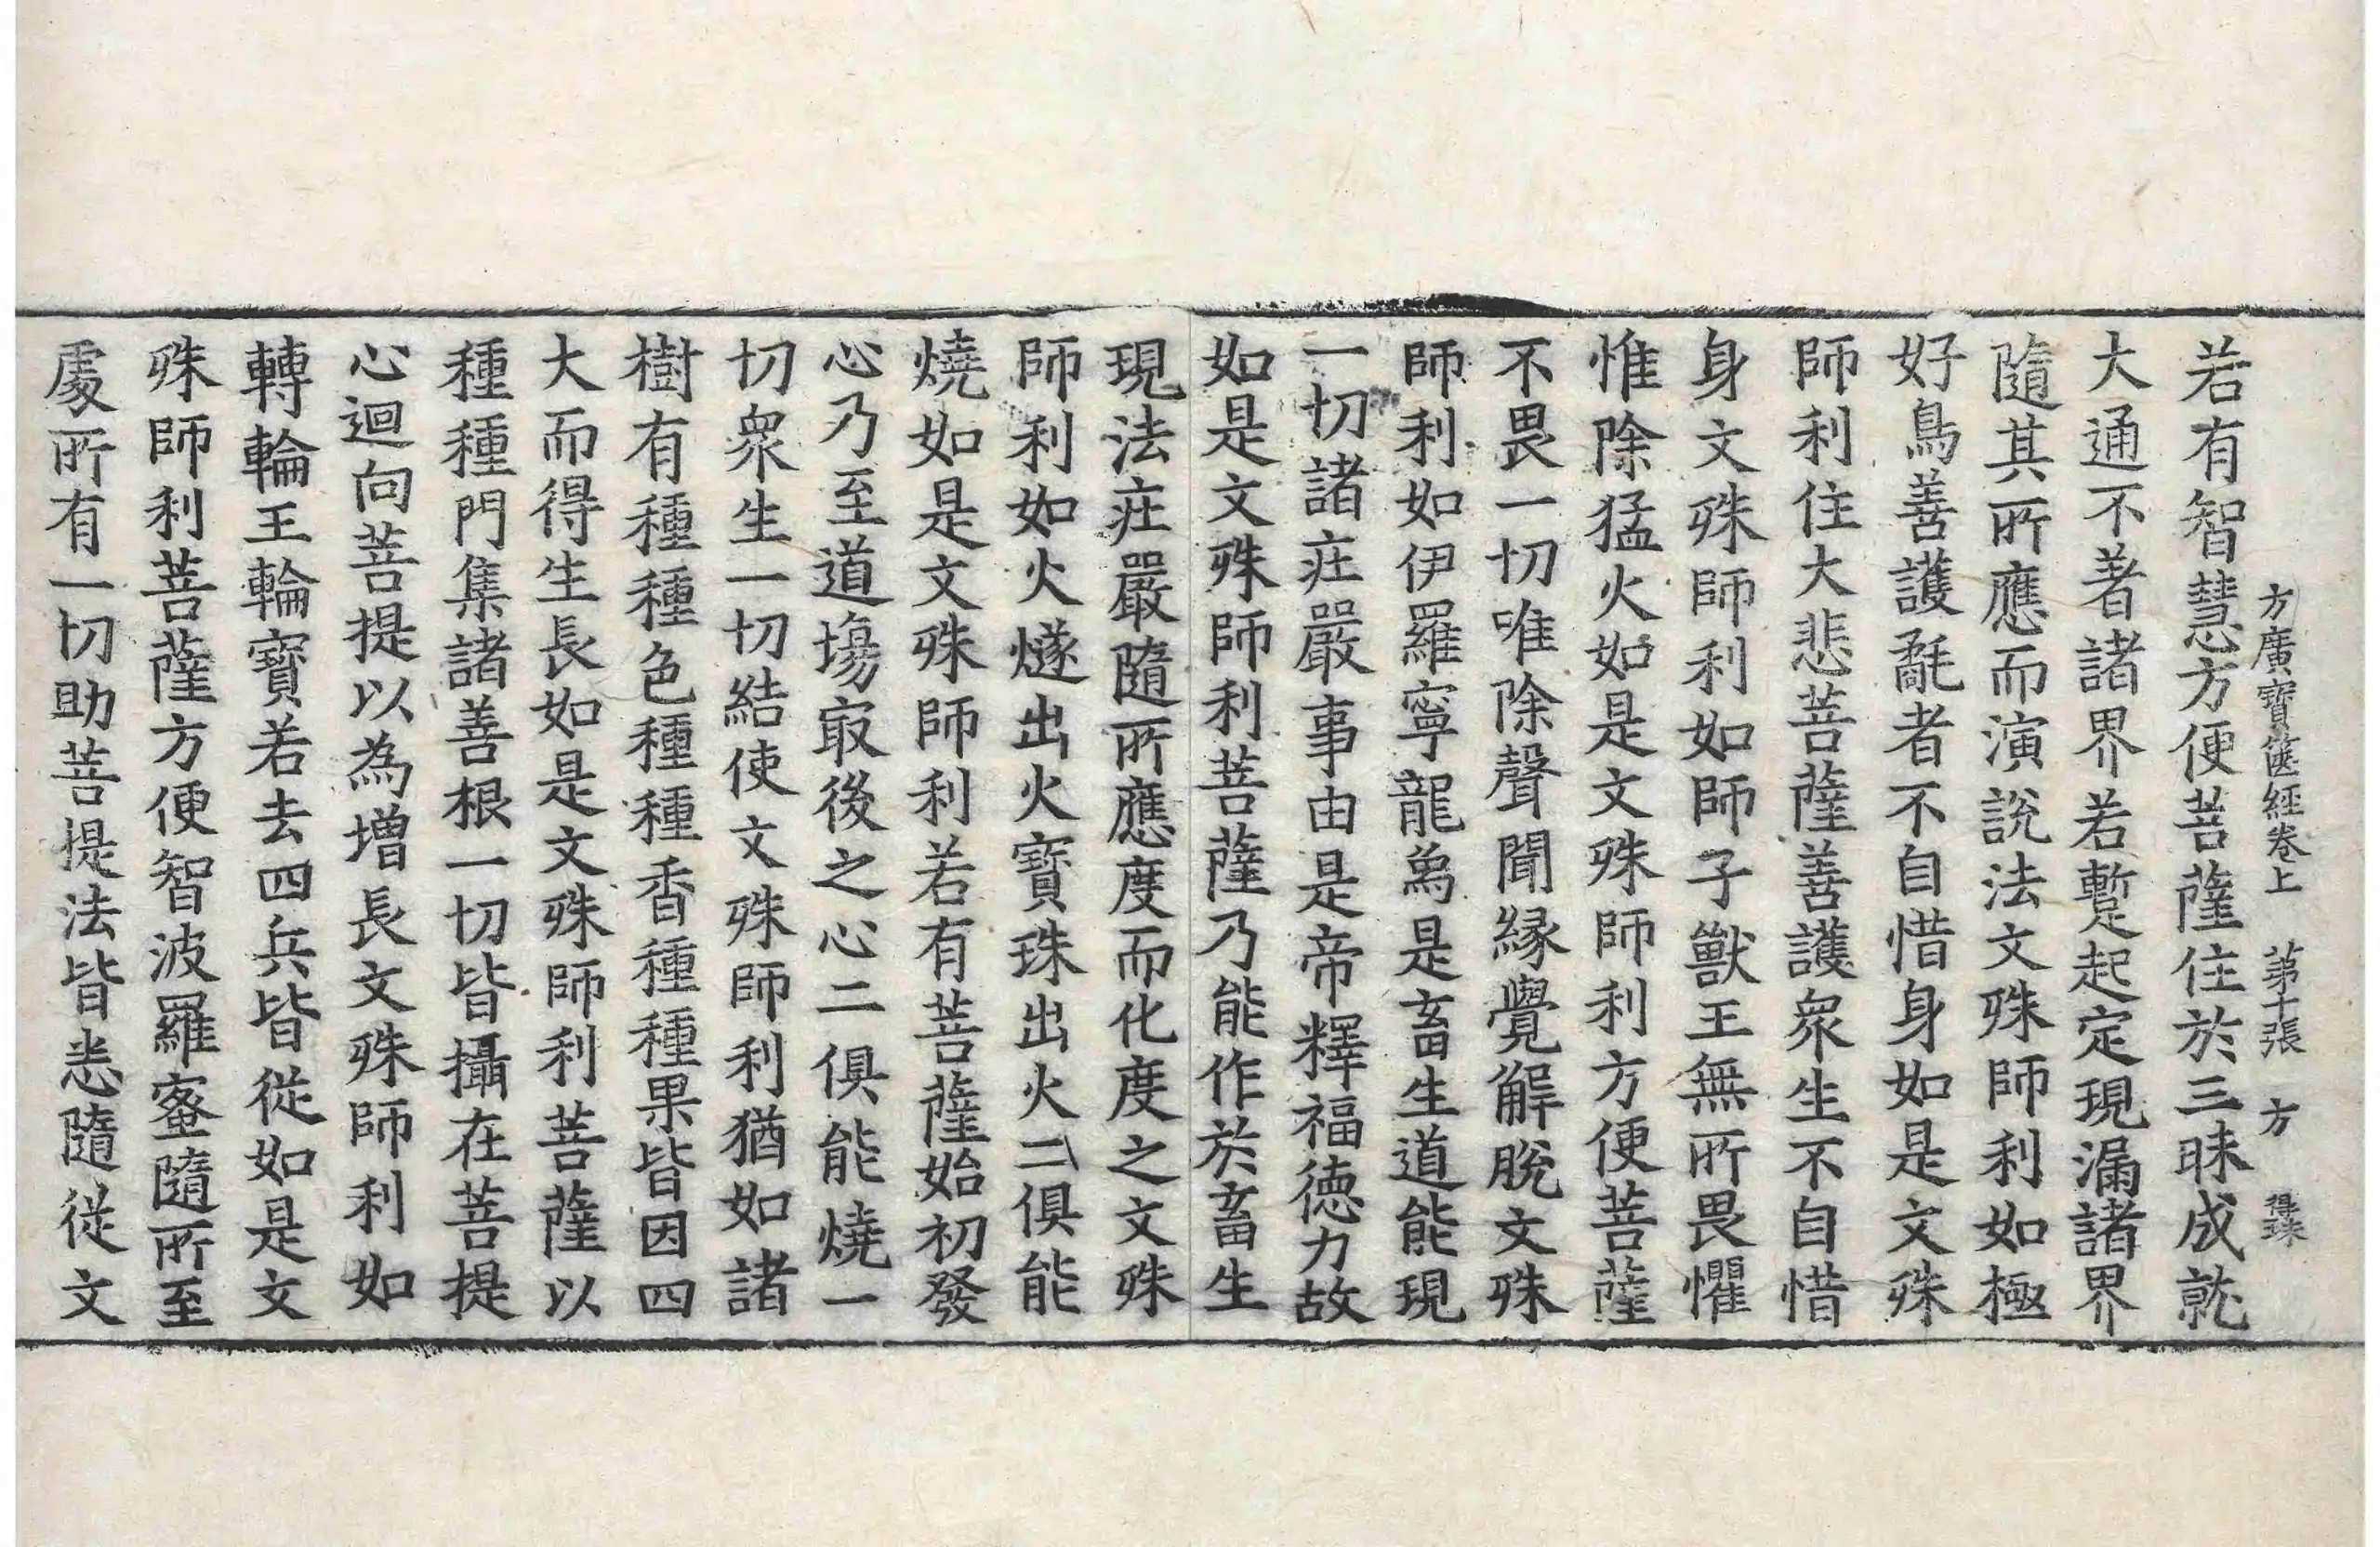 方廣寶篋經卷上 第十張 方 得珠
若有智慧方便菩薩住於三昧成就
大通不著諸界若暫起定現漏諸界
隨其所應而演說法文殊師利如極
好鳥善護毳者不自惜身如是文殊
師利住大悲菩薩善護衆生不自惜
身文殊師利如師子獸王無所畏懼
惟除猛火如是文殊師利方便菩薩
不畏一切唯除聲聞緣覺解脫文殊
師利如伊羅寧龍象是畜生道能現
一切諸莊嚴事由是帝釋福德力故
如是文殊師利菩薩乃能作於畜生
現法莊嚴隨所應度而化度之文殊
師利如火燧出火寶珠出火二俱能
燒如是文殊師利若有菩薩始初發
心乃至道場㝡後之心二俱能燒一
切衆生一切結使文殊師利猶如諸
樹有種種色種種香種種果皆因四
大而得生長如是文殊師利菩薩以
種種門集諸善根一切皆攝在菩提
心迴向菩提以為增長文殊師利如
轉輪王輪寶若去四兵皆從如是文
殊師利菩薩方便智波羅蜜隨所至
處所有一切助菩提法皆悉隨從文